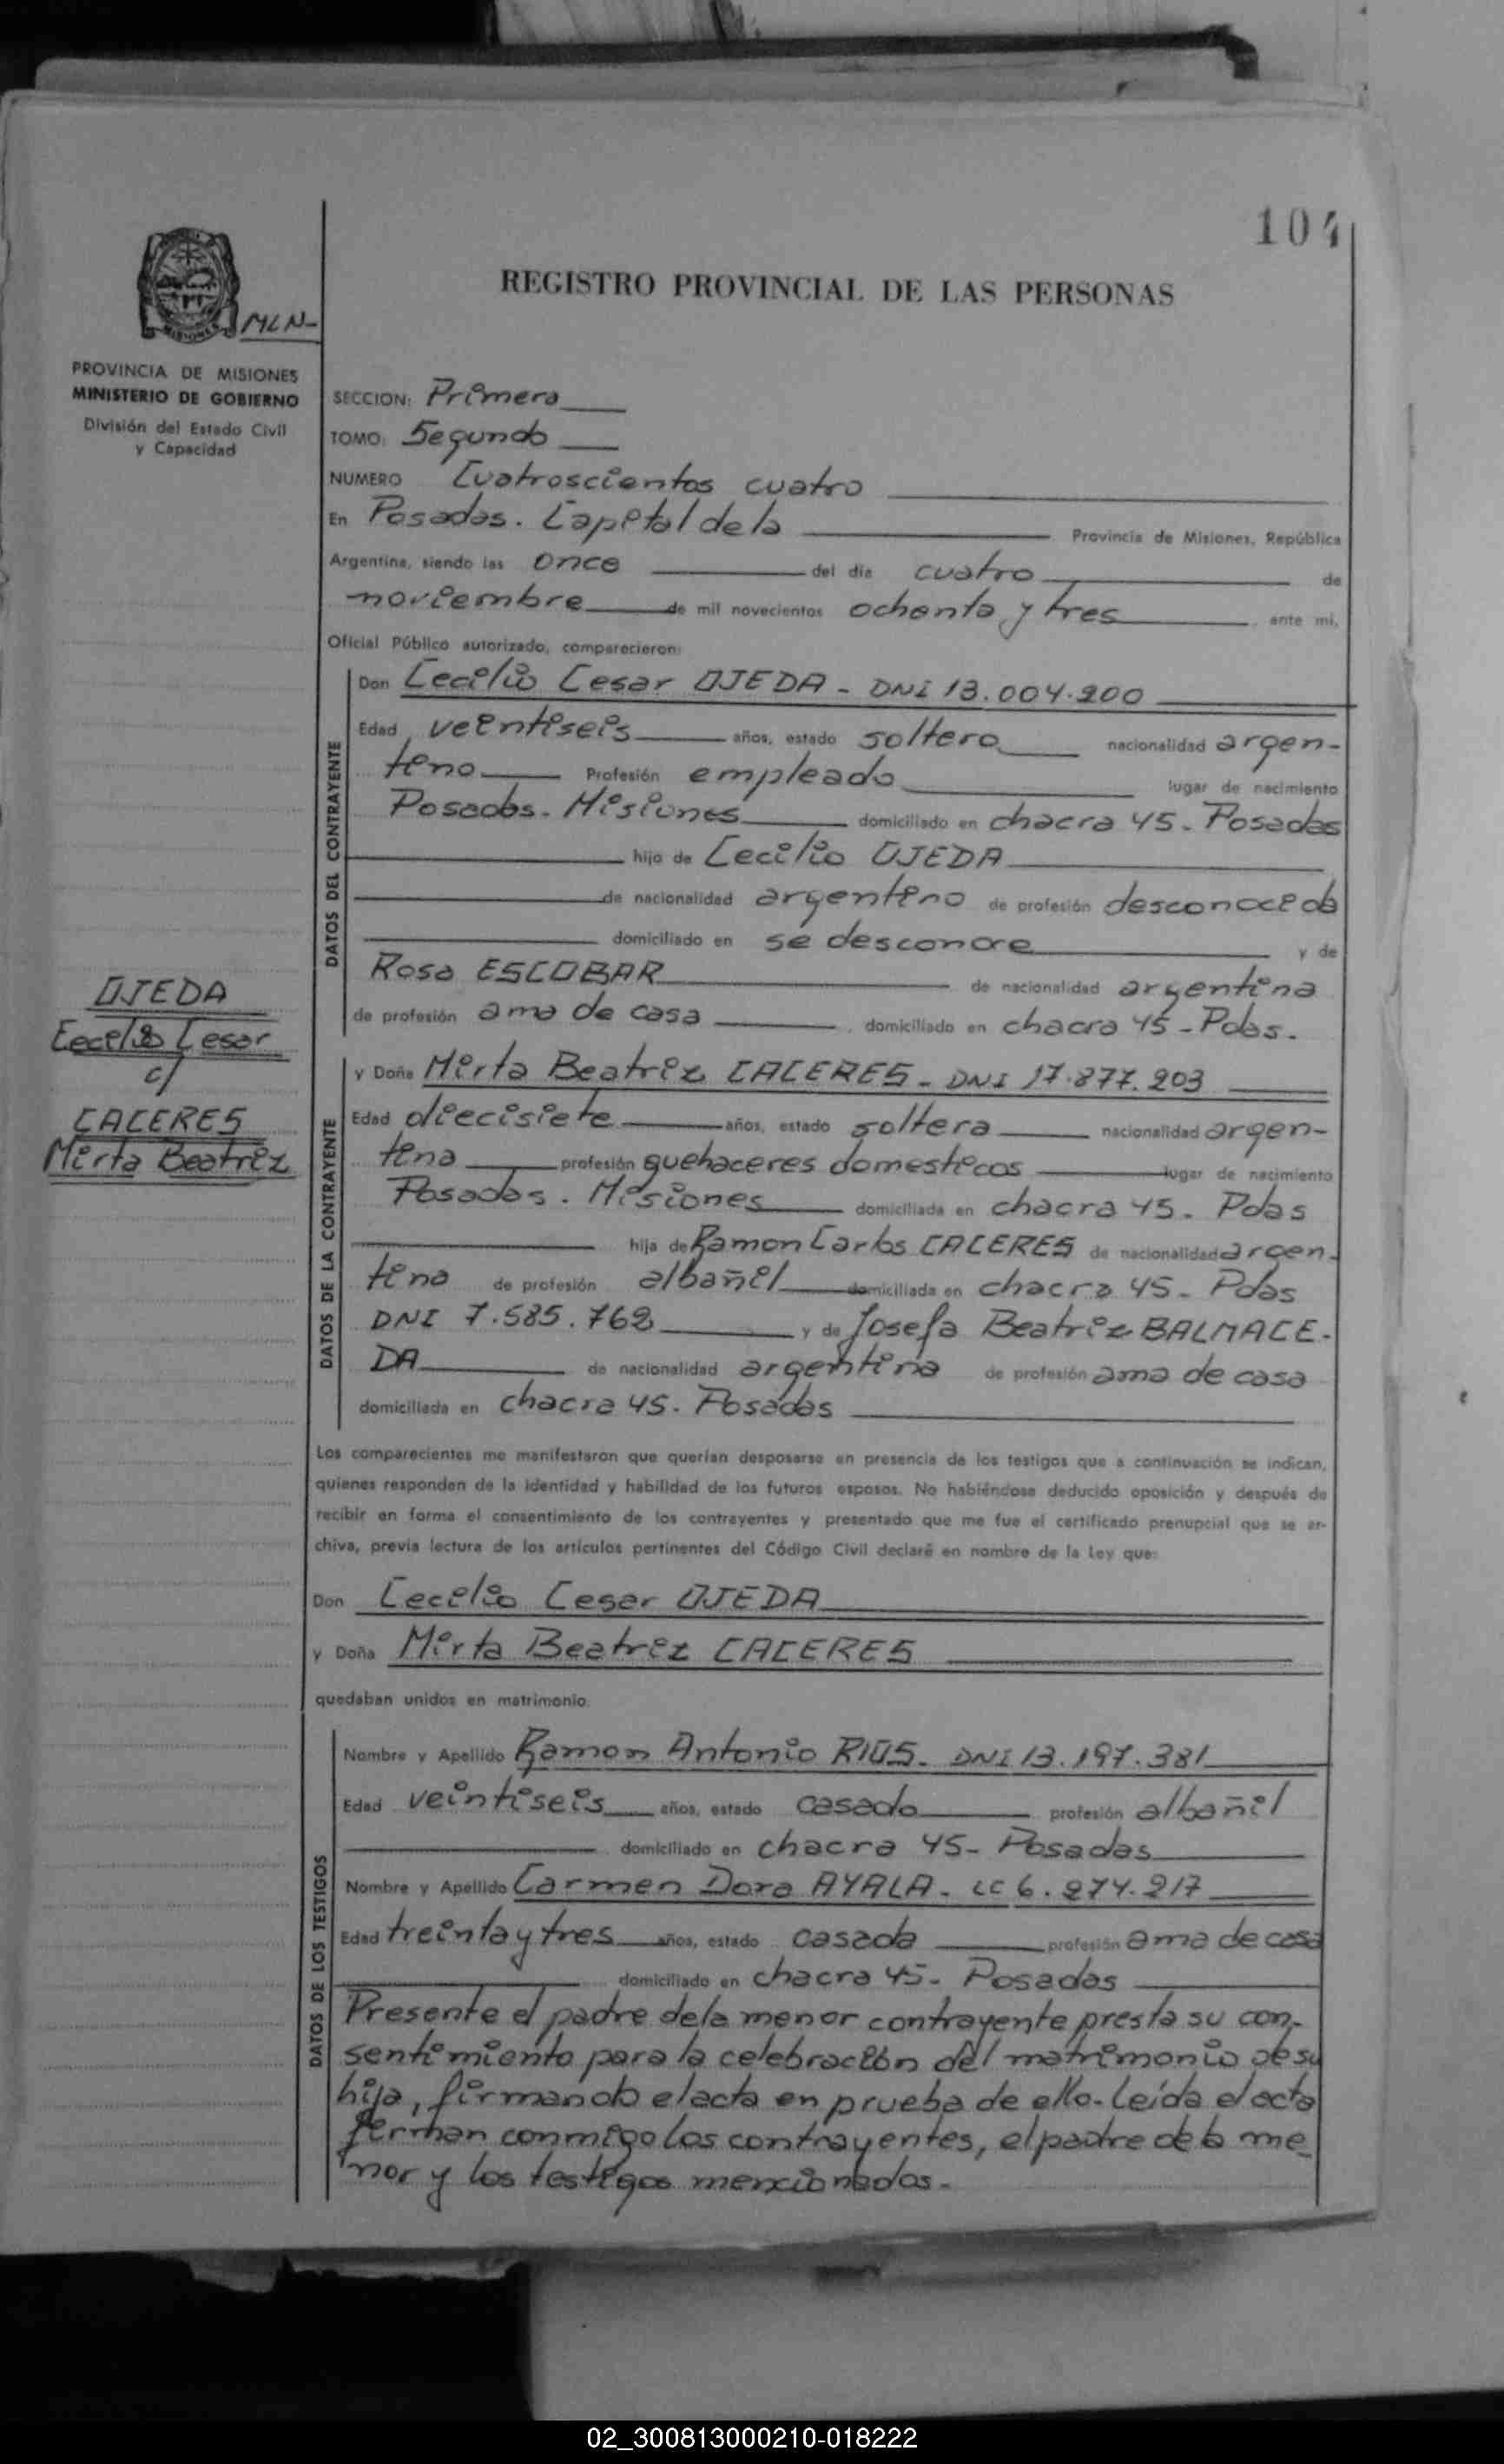 104
REGISTRO PROVINCIAL DE LAS PERSONAS
MISIONES
MLN-
PROVINCIA DE MISIONES
MINISTERIO DE GOBIERNO
División del Estado Civil
y Capacidad
SECCION: Primera
TOMO: Segundo
NUMERO Cuatroscientos cuatro
En Posadas. Capital de la Provincia de Misiones, República
Argentina, siendo las once del día cuatro de
noviembre de mil novecientos ochenta y tres ante mi,
Oficial Público autorizado, comparecieron:
DATOS DEL CONTRAYENTE
Don Cecilio Cesar OJEDA - DNI 13.004.200
Edad veintiseis años, estado soltero nacionalidad argen-
tino Profesión empleado lugar de nacimiento
Posadas. Misiones domiciliado en chacra 45. Posadas
hijo de Cecilio OJEDA
de nacionalidad argentino de profesión desconocida
domiciliado en se desconoce y de
Rosa ESCOBAR de nacionalidad argentina
de profesión ama de casa domiciliado en chacra 45 - Pdas.
OJEDA
Cecilio Cesar
c/
CACERES
Mirta Beatriz
DATOS DE LA CONTRAYENTE
y Doña Mirta Beatriz CACERES - DNI 17.877.203
Edad diecisiete años, estado soltera nacionalidad argen-
tina profesión quehaceres domesticos lugar de nacimiento
Posadas. Misiones domiciliada en chacra 45. Pdas
hija de Ramon Carlos CACERES de nacionalidad argen-
tina de profesión albañil domiciliada en chacra 45 - Pdas
DNI 7.585.762 y de Josefa Beatriz BALMACE-
DA de nacionalidad argentina de profesión ama de casa
domiciliada en chacra 45. Posadas
Los comparecientes me manifestaron que querían desposarse en presencia de los testigos que a continuación se indican,
quienes responden de la identidad y habilidad de los futuros esposos. No habiéndose deducido oposición y después de
recibir en forma el consentimiento de los contrayentes y presentado que me fue el certificado prenupcial que se ar-
chiva, previa lectura de los artículos pertinentes del Código Civil declaré en nombre de la Ley que:
Don Cecilio Cesar OJEDA
y Doña Mirta Beatriz CACERES
quedaban unidos en matrimonio.
DATOS DE LOS TESTIGOS
Nombre y Apellido Ramon Antonio RIOS. DNI 13.197.381
Edad veintiseis años, estado casado profesión albañil
domiciliado en chacra 45 - Posadas
Nombre y Apellido Carmen Dora AYALA - LC 6.274.217
Edad treinta y tres años, estado casada profesión ama de casa
domiciliado en chacra 45 - Posadas
Presente el padre de la menor contrayente presta su con-
sentimiento para la celebración del matrimonio de su
hija, firmando el acta en prueba de ello. Leída el acta
firman conmigo los contrayentes, el padre de la me
nor y los testigos mencionados.
02_300813000210-018222